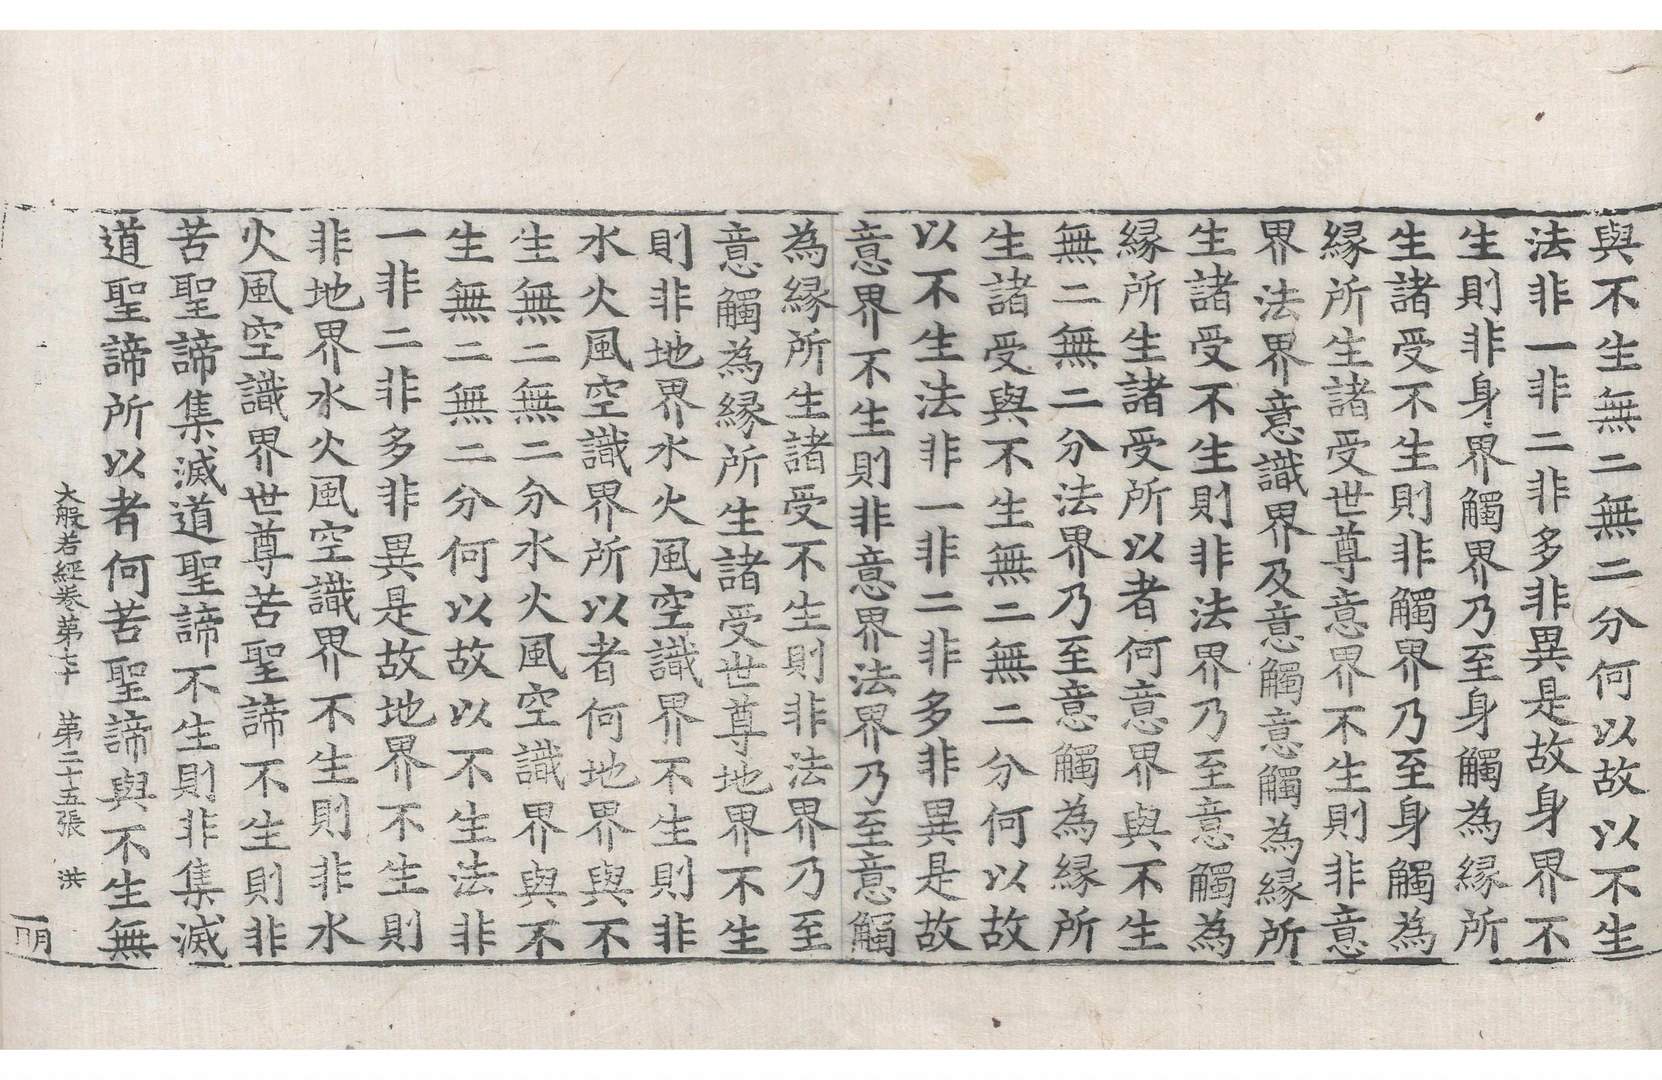 與不生無二無二分何以故以不生
法非一非二非多非異是故身界不
生則非身界觸界乃至身觸為緣所
生諸受不生則非觸界乃至身觸為
緣所生諸受世尊意界不生則非意
界法界意識界及意觸意觸為緣所
生諸受不生則非法界乃至意觸為
緣所生諸受所以者何意界與不生
無二無二分法界乃至意觸為緣所
生諸受與不生無二無二分何以故
以不生法非一非二非多非異是故
意界不生則非意界法界乃至意觸
為緣所生諸受不生則非法界乃至
意觸為緣所生諸受世尊地界不生
則非地界水火風空識界不生則非
水火風空識界所以者何地界與不
生無二無二分水火風空識界與不
生無二無二分何以故以不生法非
一非二非多非異是故地界不生則
非地界水火風空識界不生則非水
火風空識界世尊苦聖諦不生則非
苦聖諦集滅道聖諦不生則非集滅
道聖諦所以者何苦聖諦與不生無
大般若經卷第七十 第二十五張 洪